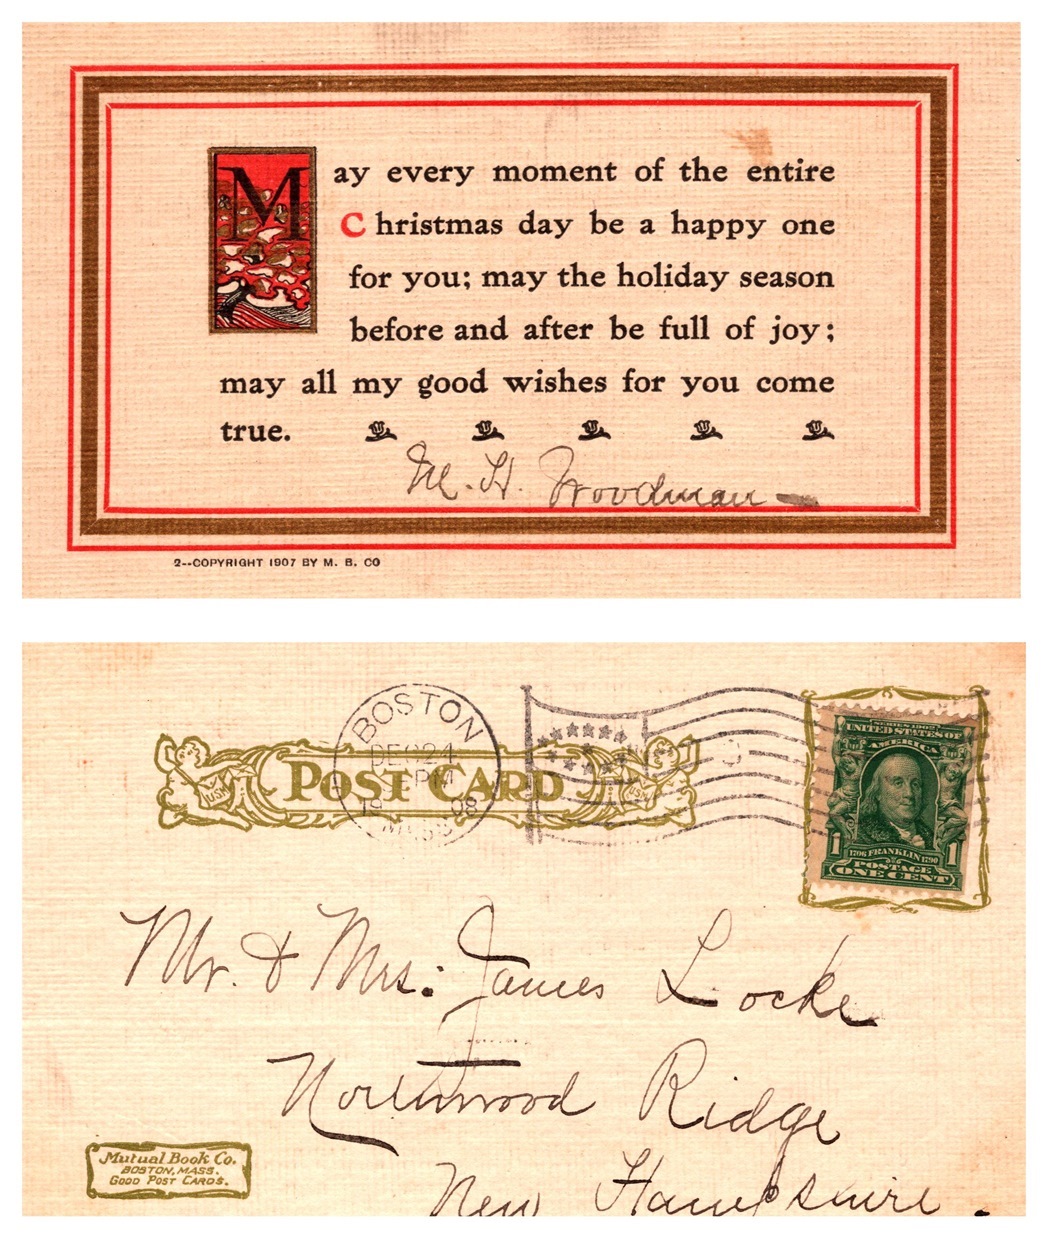 May every moment of the entire
Christmas day be a happy one
for you; may the holiday season
before and after be full of joy;
may all my good wishes for you come
true.
M. H. Woodman
2--COPYRIGHT 1907 BY M. B. CO
BOSTON
DEC 24
PM
1908
MASS
POST CARD
USM
USM
SERIES 1902
UNITED STATES OF
AMERICA
1706 FRANKLIN 1790
1 POSTAGE 1
ONE CENT
Mr. & Mrs: James Locke
Northwood Ridge
New Hampshire.
Mutual Book Co.
BOSTON, MASS.
GOOD POST CARDS.